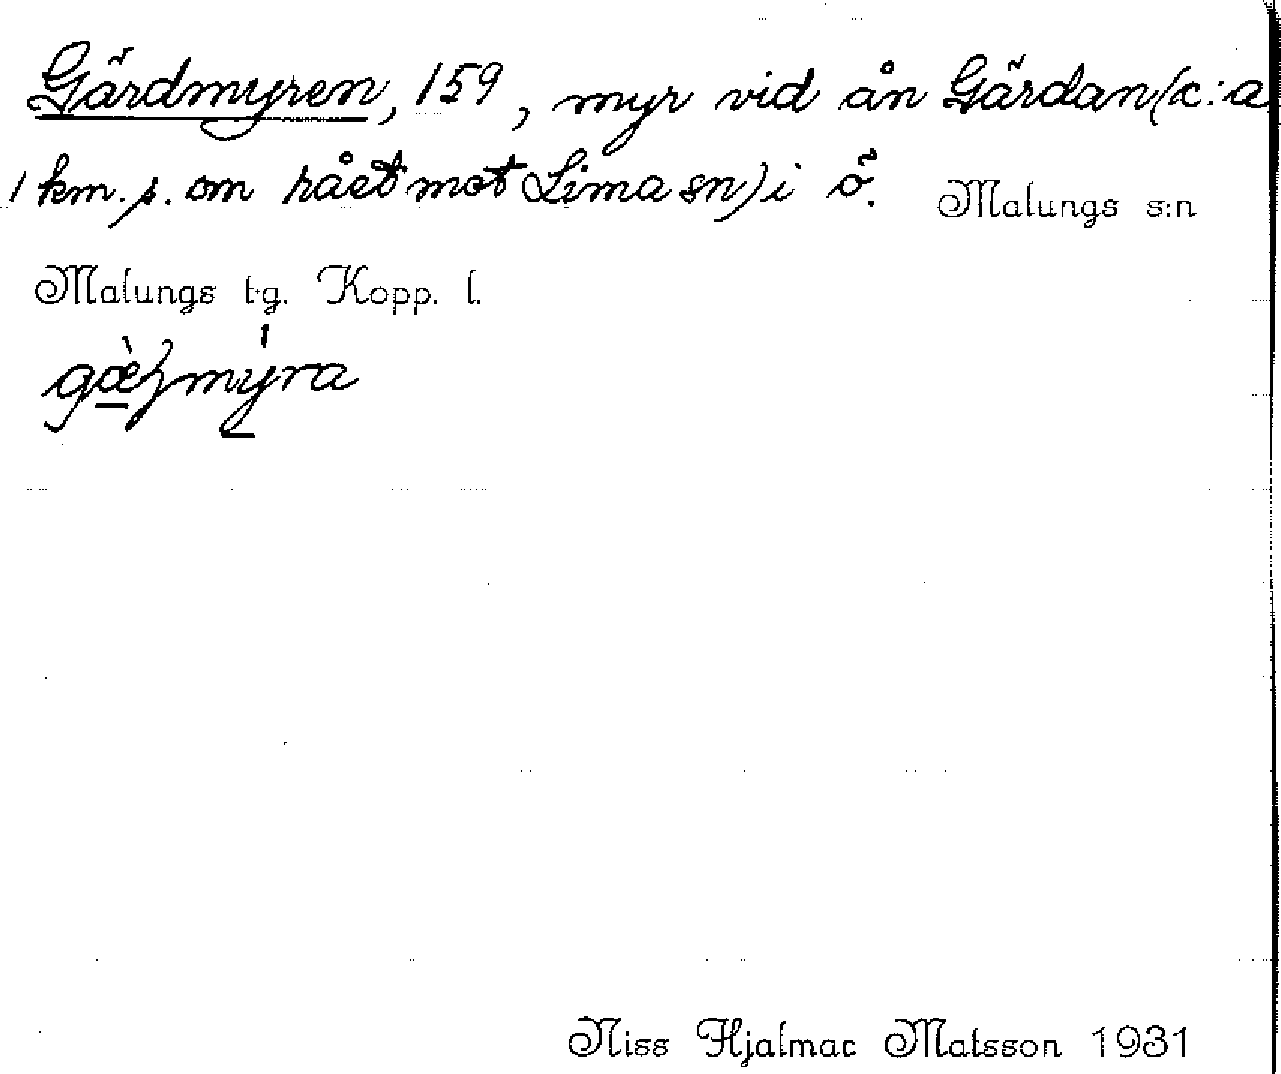 Gärdmyren, 159, myr vid ån Gärdan (c:a
1 km. s. om rået mot Lima sn) i ö. Malungs s:n
Malungs tg. Kopp. l.
Niss Hjalmar Matsson 1931